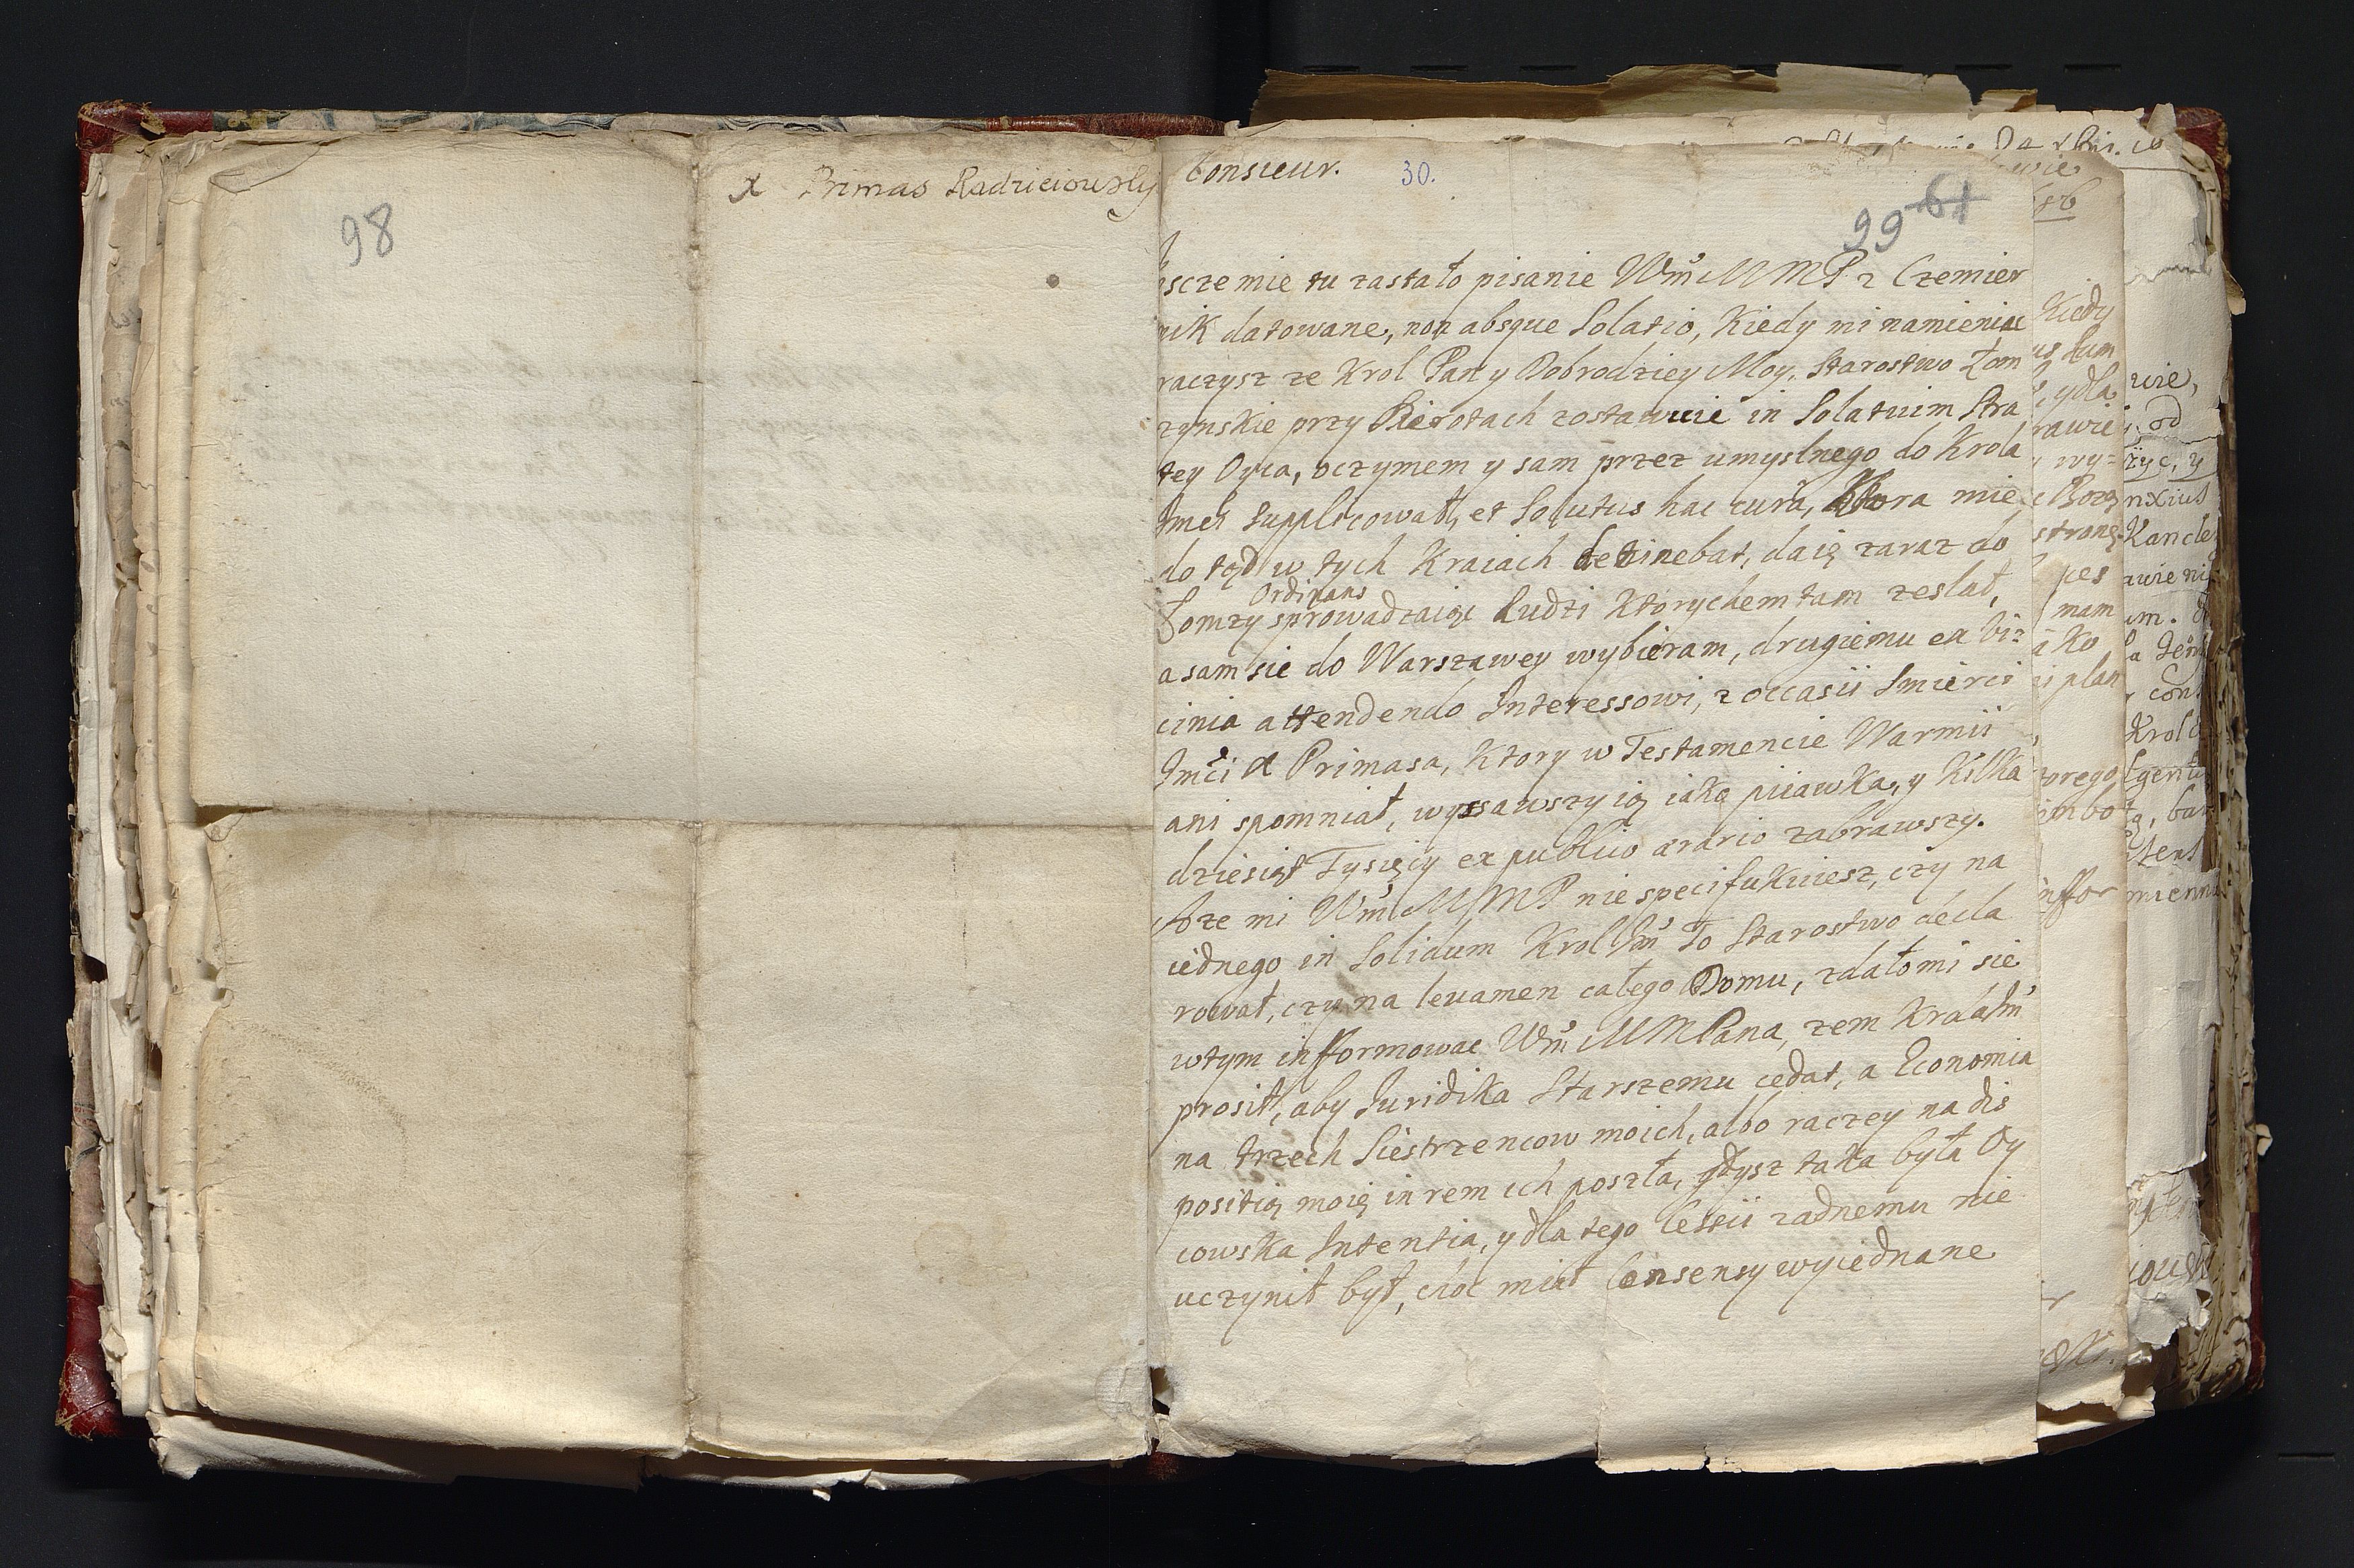 98
X Primas Radzieiowsky
onsieur.
30.
99 61
scze mie tu zastało pisanie Wm̃ MMP z Czemier
nik datowane, non absque Solatio, Kiedy mi namieniac
raczysz ze Krol Pan y Dobrodziey Moy, Starostwo Łom
zynskie przy Sierotach zostawuie in Solatium Stra
tey Oyca, oczymem y sam przez umyslnego do Krola
Jmci Supplicował, et Solutus hac cura, Ktora mie
do tąd w tych Kraiach detinebat, daię zaraz do
Ordinans
Łomzy sprowadzaiąc Ludzi Ktorychem tam zesłał,
a sam sie do Warszawey wybieram, drugiemu ex bi-
cinia attendendo Interessowi, z occasii Smierci
Jmci X Primasa, Ktory w Testamencie Warmii
ani spomniał, wyssawszy ią iako piiawka, y Kilka
dziesiąt Tysięcy ex publico ærario zabrawszy.
Aze mi Wm̃ MMP nie specifukuiesz, czy na
iednego in Solidum Krol Jm̃ To Starostwo decla
rował, czy na levamen całego Domu, zdało mi sie
w tym informowac Wm̃ MMPana, zem Krala Jm̃
prosił, aby Juridika Starszemu cedat, a Economia
na trzech Siestrzencow moich, albo raczey na dis
positią moię in rem ich poszła, gdysz taka była Oy
cowska Intentia, y dla tego Cessii zadnemu nie
uczynił był, choc miał Consensy wyiednane
wie
Kiedy
ydla
rawie
wy=
stronę
mam
ako
orego
wie,
od
nxius
Kancle
Krol